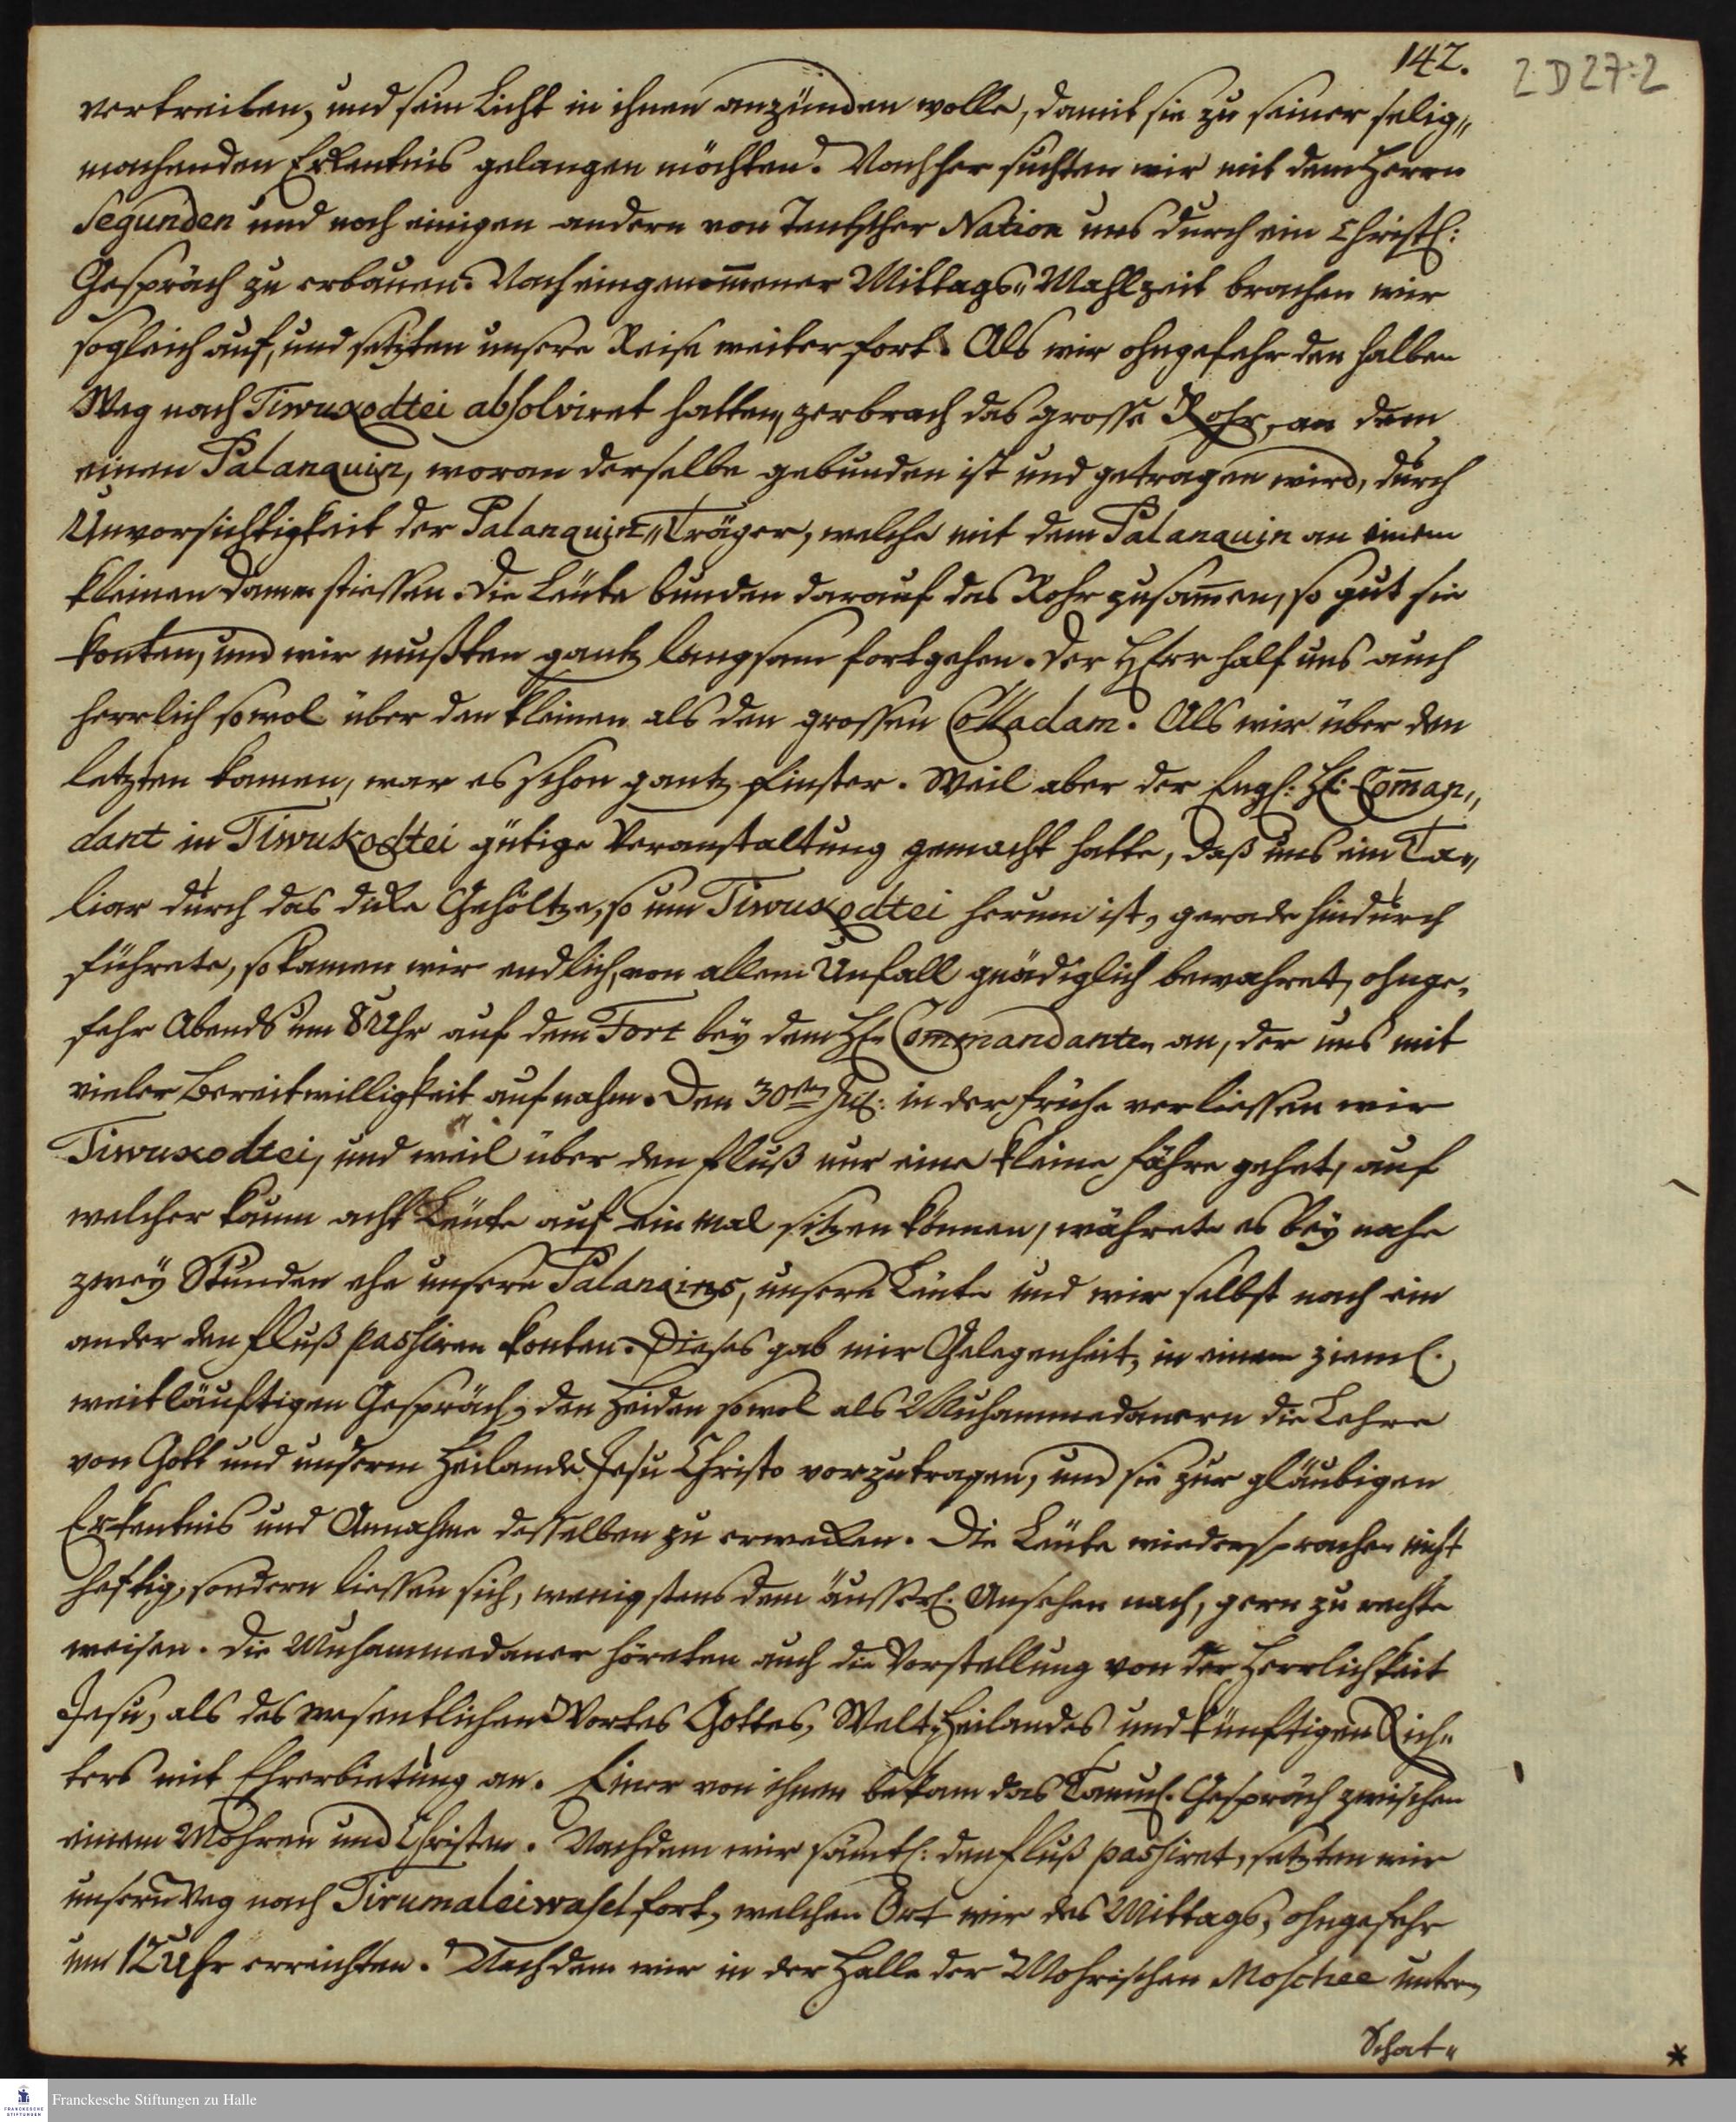 142.
2 D 27:2
vertreiben, und sein Licht in ihnen anzünden wolle, damit sie zu seiner selig„
machenden Erkentnis gelangen möchten. Nachher suchten wir mit dem Herrn
Segunden und noch einigen andern von Teutscher Nation uns durch ein Christl:
Gespräch zu erbauen. Nach eingenom̄ener Mittags„Mahlzeit brachen wir
sogleich auf, und setzten unsere Reise weiter fort. Als wir ohngefehr den halben
Weg nach Tiwukodtei absolviret hatten, zerbrach das grosse Rohr, an dem
einen Palanquin, woran derselbe gebunden ist und getragen wird, durch
Unvorsichtigkeit der Palanquin„Träger, welche mit dem Palanquin an einem
kleinen Dam̄ stiessen. Die Leute bunden darauf das Rohr zusam̄en, so gut sie
konten, und wir mußten gantz langsam fortgehen. Der HErr half uns auch
herrlich sowol über den kleinen als den grossen Colladam. Als wir über den
letzten kamen, war es schon gantz finster. Weil aber der Engl: H: Com̄an„
dant in Tiwukodtei gütige Veranstaltung gemacht hatte, daß uns ein Ta„
liar durch das dicke Gehöltze, so um Tiwukodtei herum ist, gerade hindurch
führete, so kamen wir endlich, von allem Unfall gnädiglich bewahret, ohnge„
fehr Abends um 8 Uhr auf dem Fort bey dem Hn Commandanten an, der uns mit
vieler Bereitwilligkeit aufnahm. Den 30sten Jul: in der frühe verliessen wir
Tiwukodtei, und weil über den Fluß nur eine kleine Fähre gehet, auf
welcher kaum acht Leute auf ein mal sitzen können, währete es bey nahe
zwey Stunden ehe unsere Palanqins, unsere Leute und wir selbst nach ein
ander den Fluß passiren konten. Dieses gab mir Gelegenheit, in einem zieml.
weitläuftigen Gespräch, den Heiden sowol als Muhammedanern die Lehre
von Gott und unserm Heilande Jesu Christo vorzutragen, und sie zur gläubigen
Erkentnis und Annahme desselben zu erwecken. Die Leute wiedersprachen nicht
heftig, sondern liessen sich, wenigstens dem äusserl. Ansehen nach, gern zu rechte
weisen. Die Muhammedaner höreten auch die Vorstellung von der Herrlichkeit
Jesu, als des wesentlichen Wortes Gottes, Welt„Heilandes und künftigen Rich„
ters mit Ehrerbietung an. Einer von ihnen bekam das Tamul. Gespräch zwischen
einem Mohren und Christen. Nachdem wir sämtl: den Fluß passiret, setzten wir
unsern Weg nach Tirumaleiwasel fort, welchen Ort wir des Mittags, ohngefehr
um 12 Uhr erreichten. Nachdem wir in der Halle der Mohrischen Moschee unter„
Schat„
*
Franckesche Stiftungen zu Halle